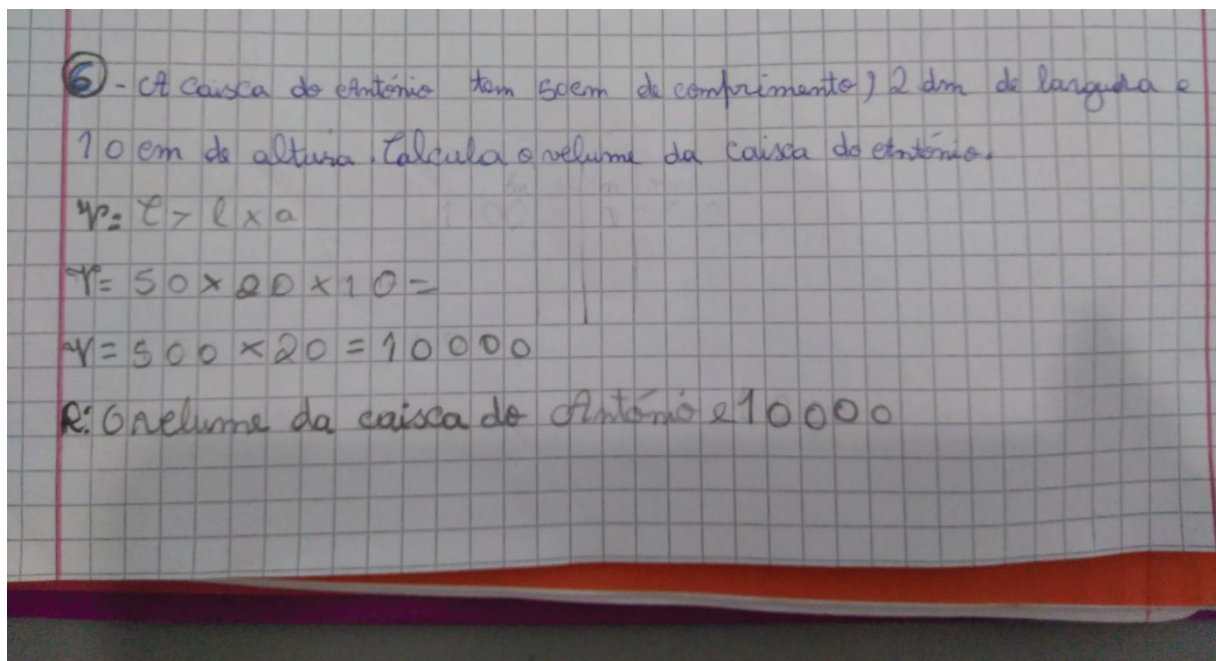 6 - A caisca do António tem 50cm de comprimento, 2 dm de largura e
10 cm de altura. Calcula o volume da caisca do António.
V= C > l x a
V= 50 x 20 x 10 =
V= 500 x 20 = 10000
R: O volume da caisca do António e 10000